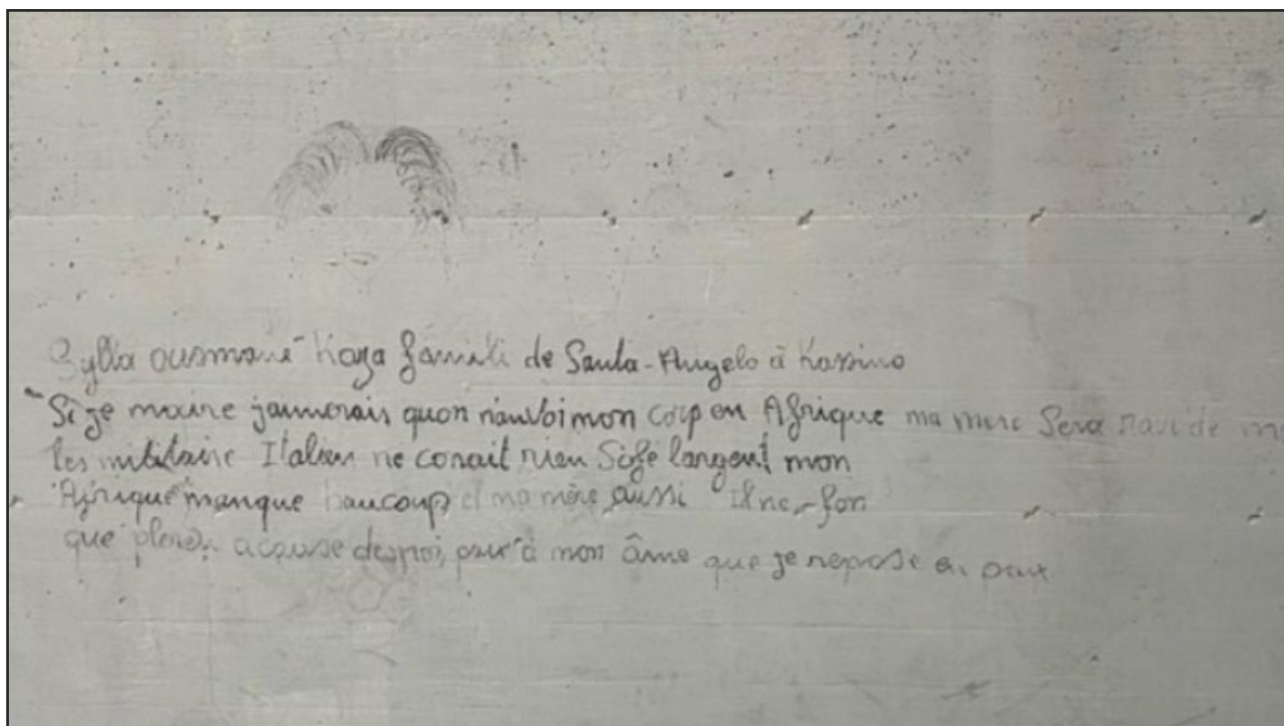 Sylla ousmane Kaza famili de Santa-Angelo à Kassino
Si je moire jaimerais quon ranvoi mon corp en Afrique ma mere Sera ravi de
les militaire Italien ne conait rien Sofe largent mon
Afrique manque baucoup et ma mère aussi Il ne-fon
que plerer acause de moi, paix à mon âme que je repose en paix